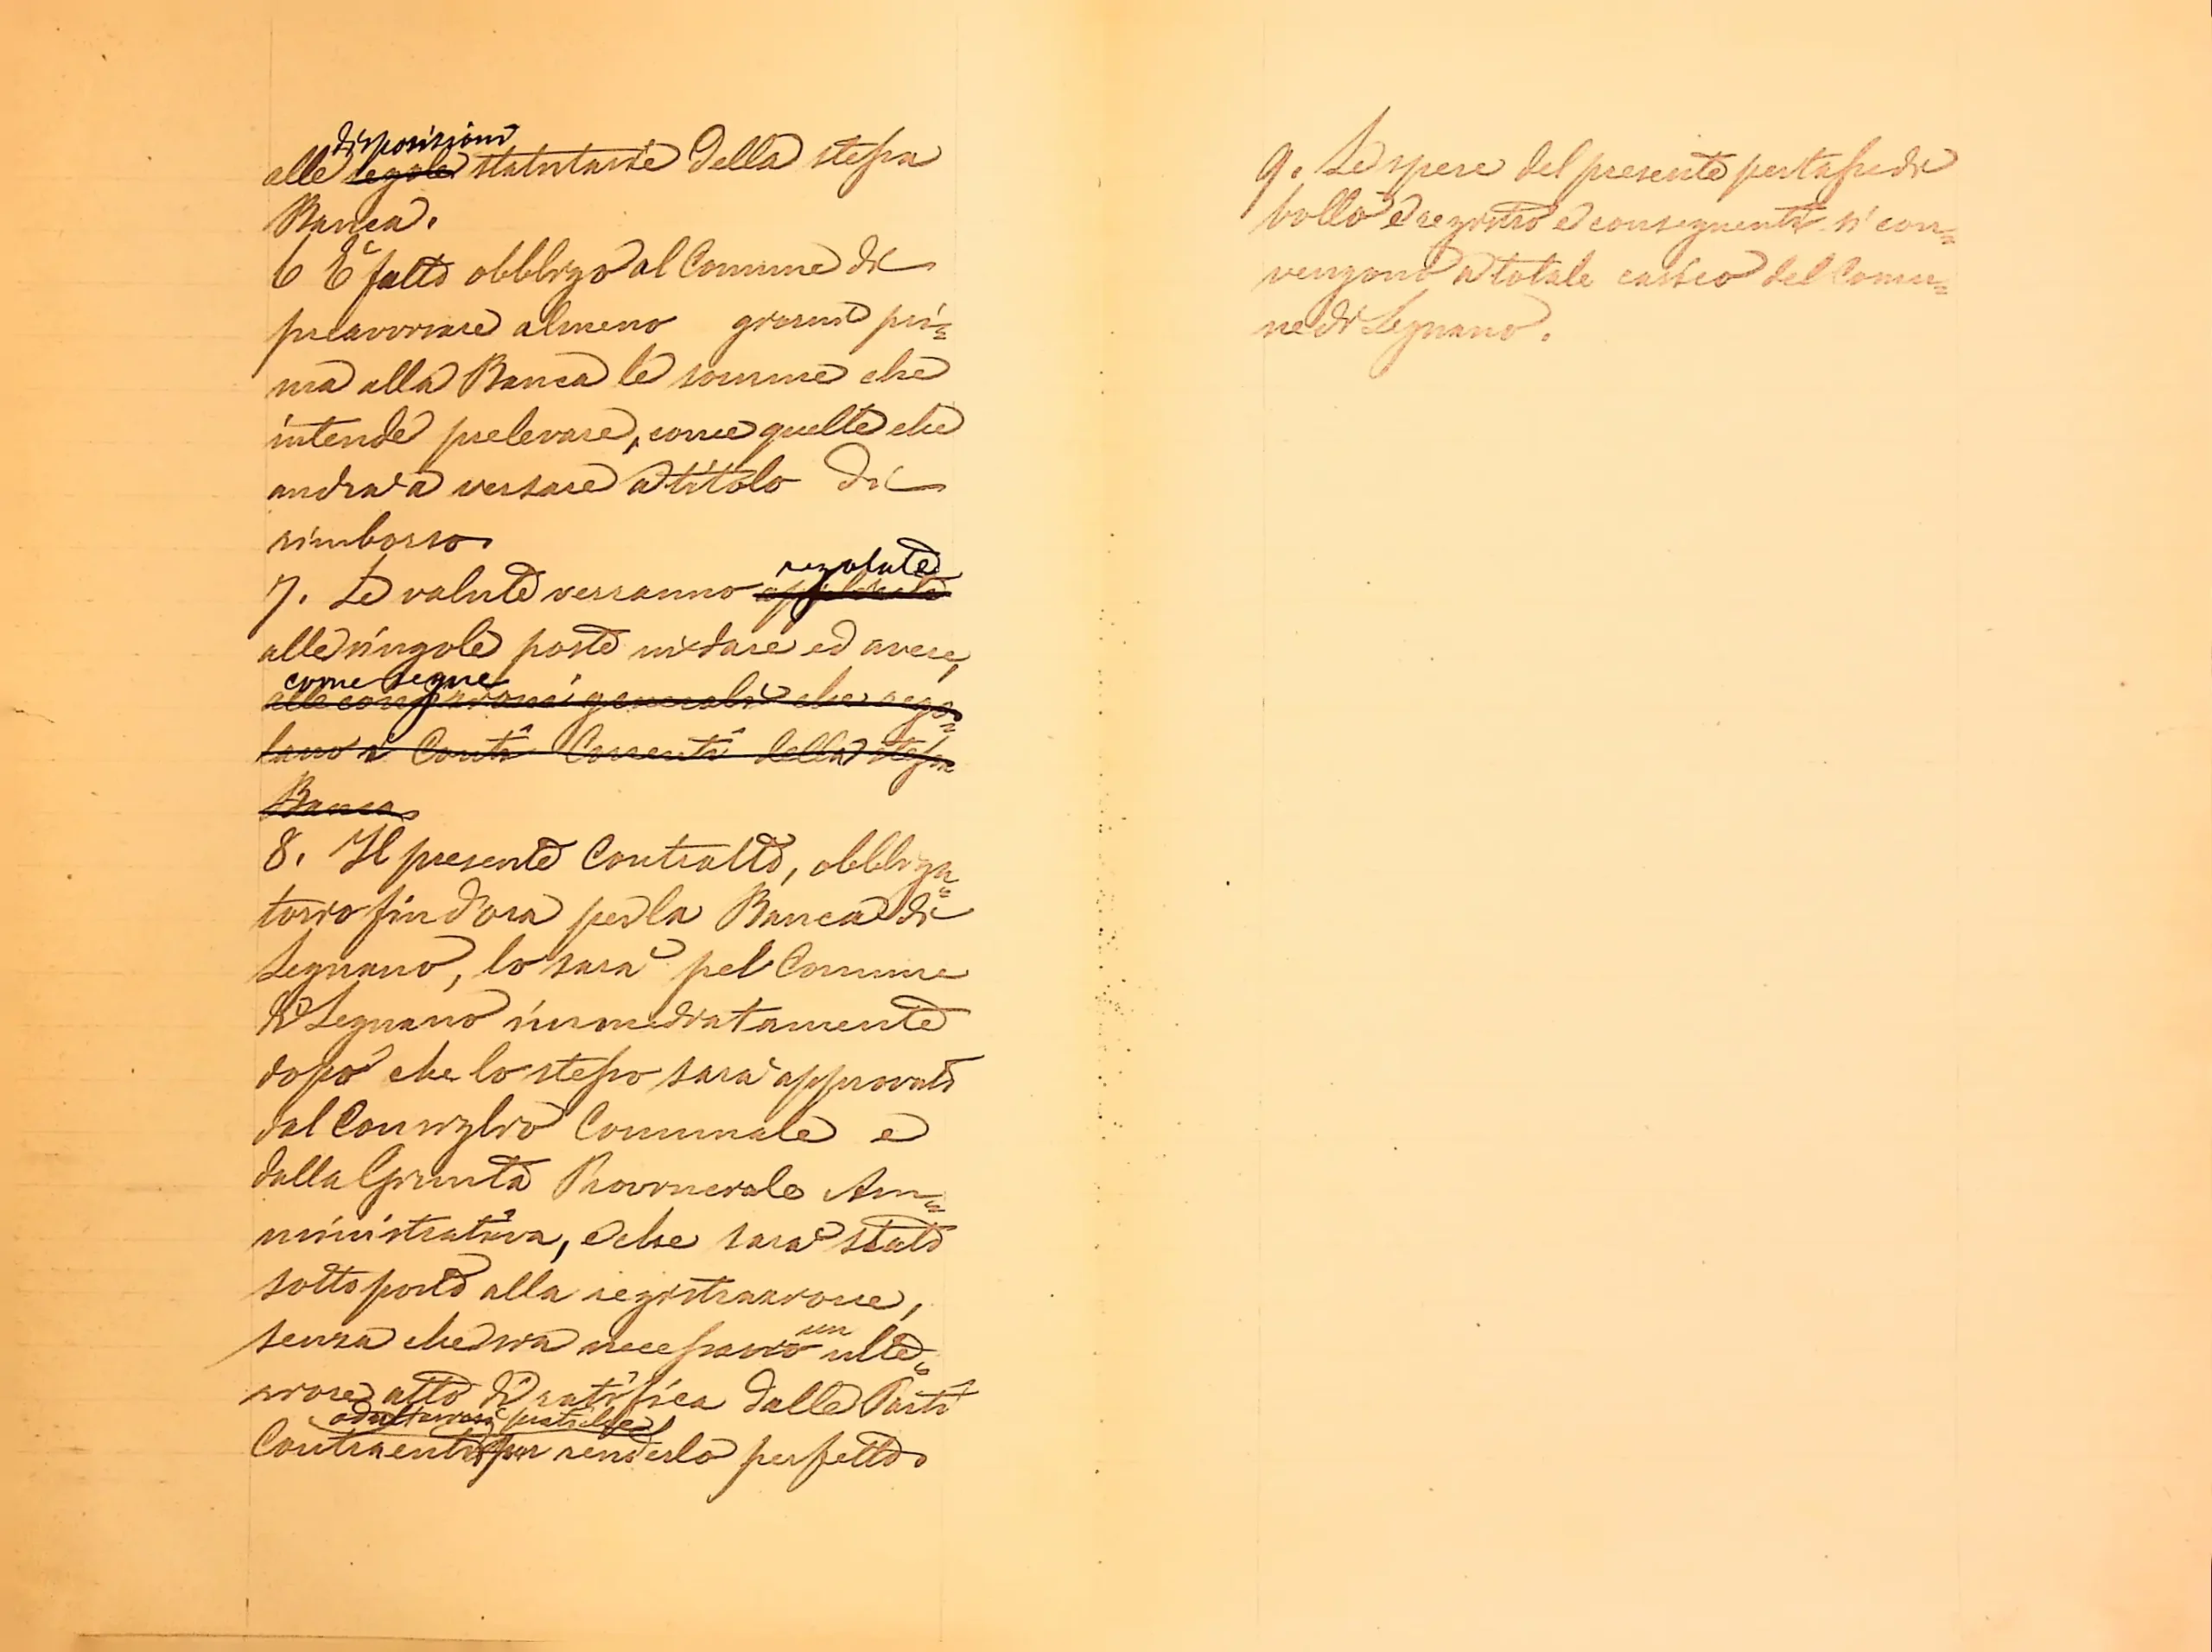 disposizioni
alle regole statutarie della stessa
Banca.
6 È fatto obbligo al Comune di
preavvisare almeno giorni pri=
ma alla Banca le somme che
intende prelevare, come quelle che
andrà a versare a titolo di
rimborso.
regolate
7. Le valute verranno applicate
alle singole poste in dare ed avere,
come segue
alle condizioni generali che rego=
lano i Conti Correnti della stessa
Banca
8. Il presente Contratto, obbliga=
torio fin d'ora per la Banca di
Legnano, lo sarà pel Comune
di Legnano immediatamente
dopo che lo stesso sarà approvato
dal Consiglio Comunale e
dalla Giunta Provinciale Am=
ministrativa, e che sarà stato
sottoposto alla registrazione,
senza che sia necessario un ulte=
riore atto di ratifica dalle Parti
Contraenti per renderlo perfetto.
9. Le spese del presente per tasse di
bollo e registro e conseguenti si con=
vengono a totale carico del Comu=
ne di Legnano.